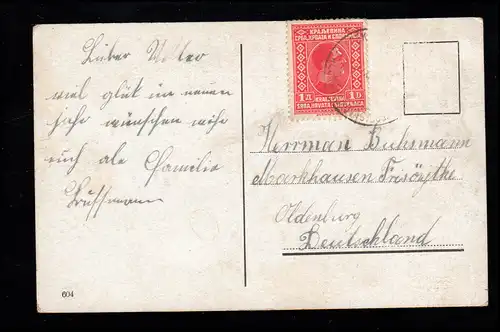 Lieber Vetter
viel glük im neuen
jahr wünschen wihr
euch ale Familie
Brussmann
КРАЉЕВИНА
СРБА, ХРВАТА И СЛОВЕНАЦА
1 Д 1 D
KRALJEVINA
SRBA, HRVATA I SLOVENACA
Herrman Buhsmann
Markhausen Frisöythe
Oldenburg
Deutschland
604